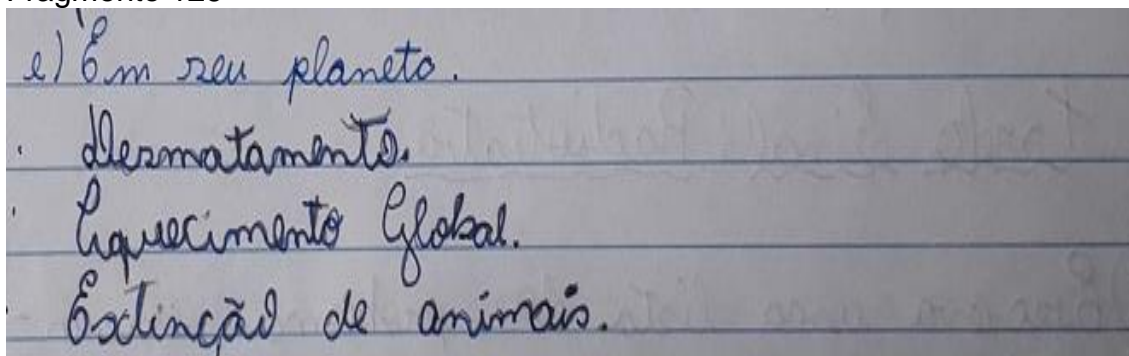 e) Em seu planeto.
· Desmatamento.
· Equecimento Global.
· Extinção de animais.